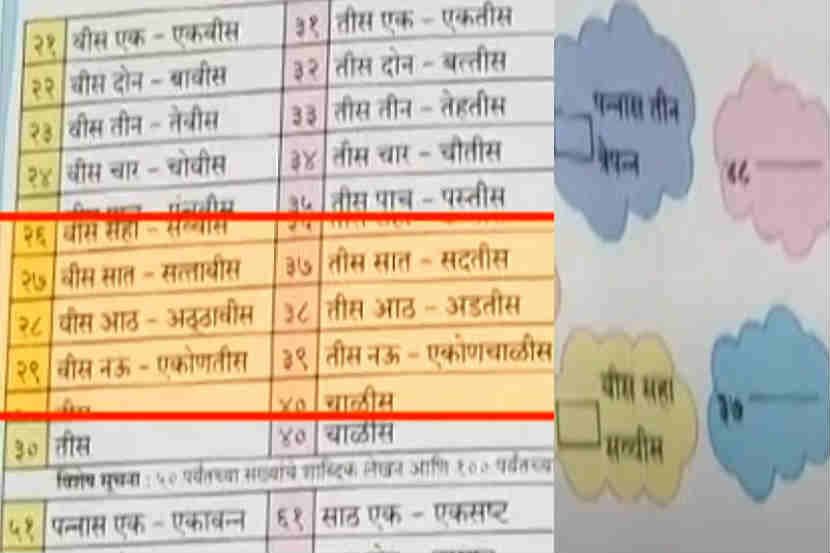 २१ वीस एक - एकवीस ३१ तीस एक - एकतीस
२२ वीस दोन - बावीस ३२ तीस दोन - बत्तीस
२३ वीस तीन - तेवीस ३३ तीस तीन - तेहतीस
२४ वीस चार - चोवीस ३४ तीस चार - चौतीस
३५ तीस पाच - पस्तीस
२६ वीस सहा - सव्वीस
२७ वीस सात - सत्तावीस ३७ तीस सात - सदतीस
२८ वीस आठ - अठ्ठावीस ३८ तीस आठ - अडतीस
२९ वीस नऊ - एकोणतीस ३९ तीस नऊ - एकोणचाळीस
४० चाळीस
३० तीस ४० चाळीस
विशेष सूचना : ५० पर्यंतच्या संख्यांचे शाब्दिक लेखन आणि १०० पर्यंतच्या
५१ पन्नास एक - एकावन्न ६१ साठ एक - एकसष्ट
पन्नास तीन
त्रेपन्न
४८
वीस सहा
सव्वीस
३७